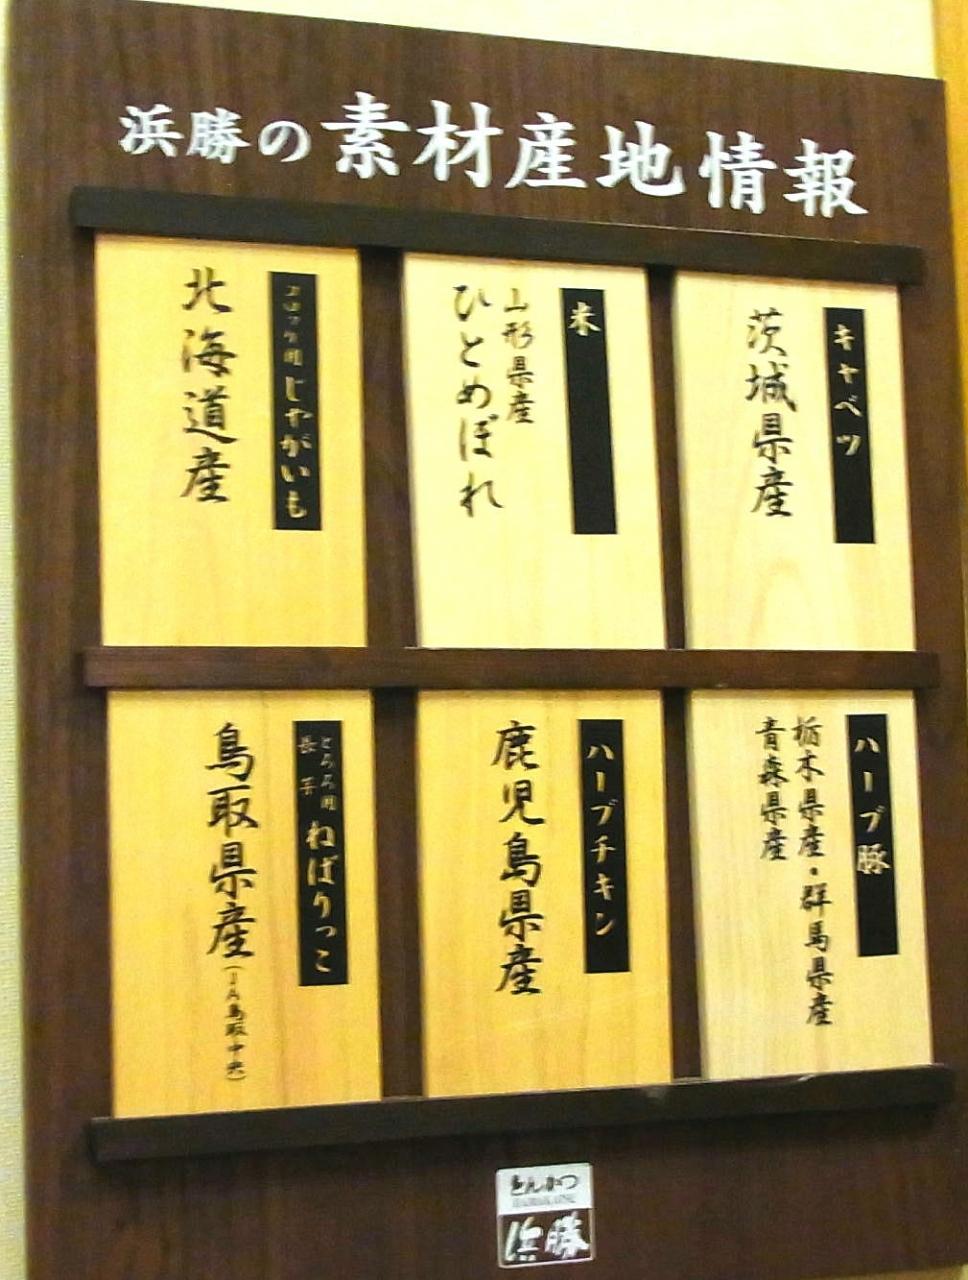 浜勝の素材産地情報
キャベツ
茨城県産
米
山形県産
ひとめぼれ
コロッケ用 じゃがいも
北海道産
ハーブ豚
栃木県産・群馬県産
青森県産
ハーブチキン
鹿児島県産
とろろ用
長芋
ねばりっこ
鳥取県産
(JA鳥取中央)
とんかつ
HAMAKATSU
浜勝